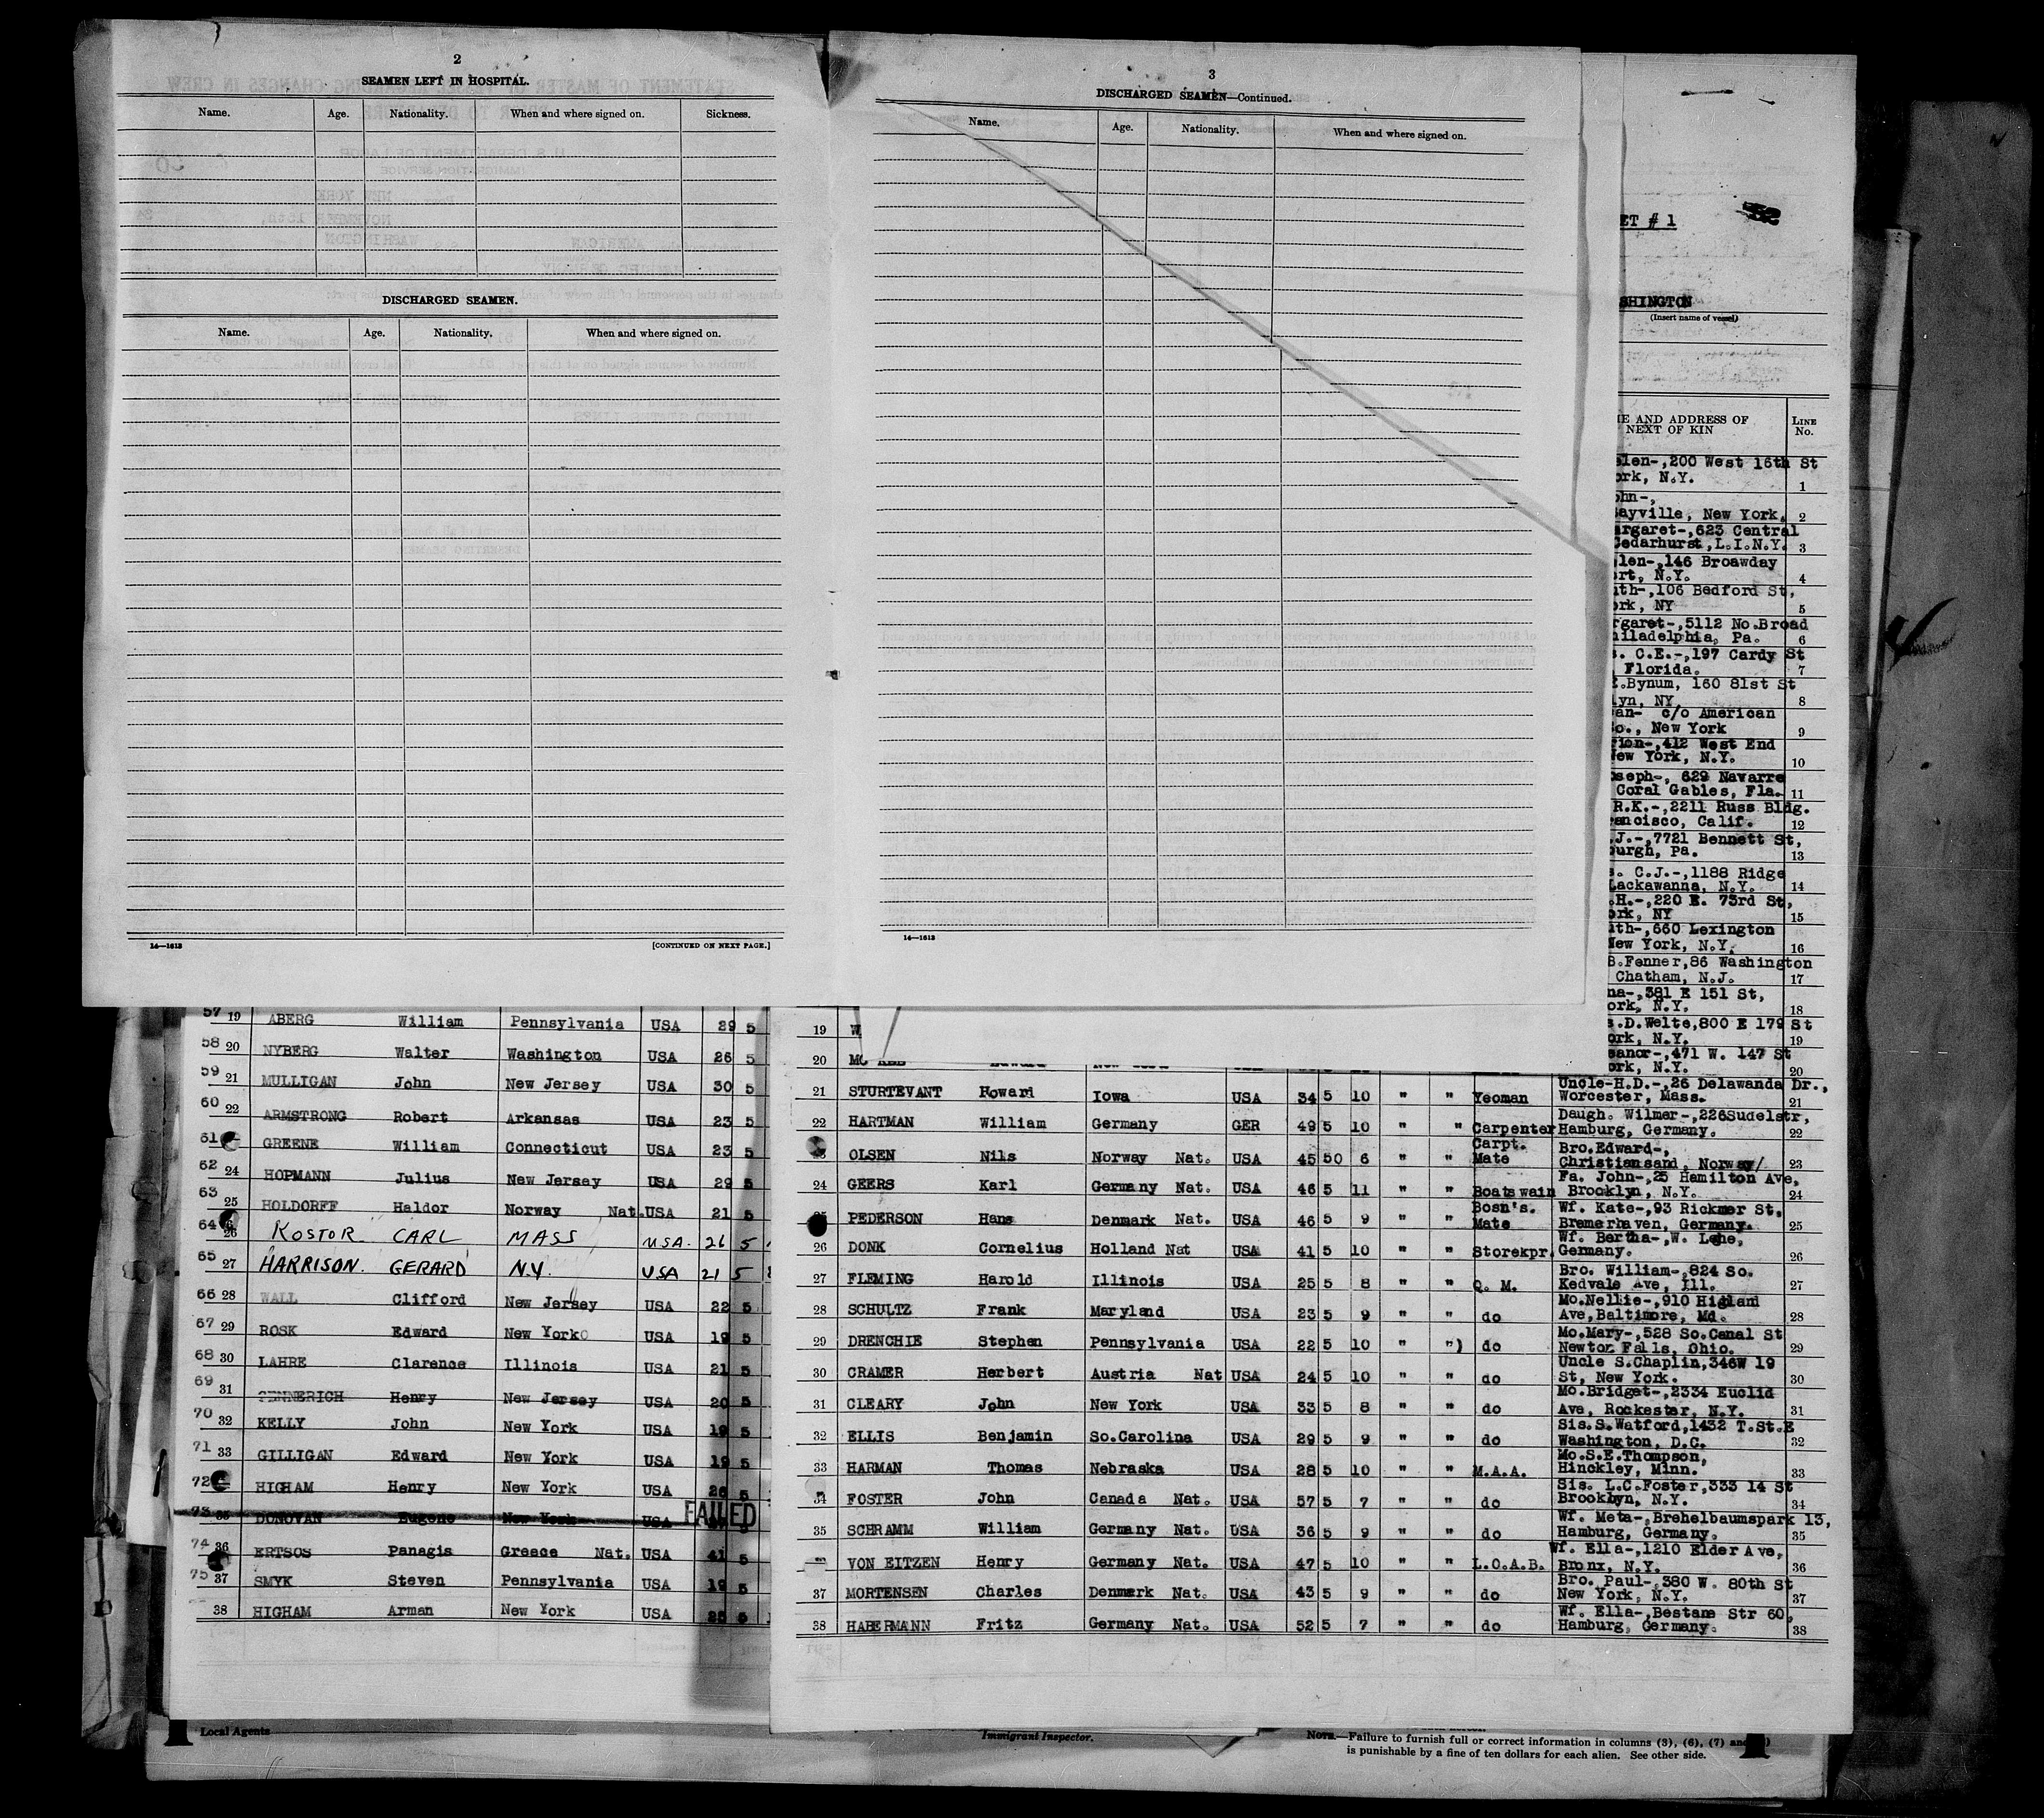 2
SEAMEN LEFT IN HOSPITAL.
Name. Age. Nationality. When and where signed on. Sickness.
DISCHARGED SEAMEN.
Name. Age. Nationality. When and where signed on.
14—1613 [CONTINUED ON NEXT PAGE.]
3
DISCHARGED SEAMEN—Continued.
Name. Age. Nationality. When and where signed on.
14—1613
ET # 1
SHINGTON
(Insert name of vessel)
E AND ADDRESS OF NEXT OF KIN LINE No.
elen-,200 West 16th St
ork, N.Y. 1
ohn-,
ayville, New York. 2
argaret-,623 Central
Cedarhurst,L.I.N.Y. 3
len-,146 Broawday
rt, N.Y. 4
uth-,106 Bedford St,
ork, NY 5
rgaret-,5112 No.Broad
hiladelphia, Pa. 6
s. C.E.-,197 Cardy St
Florida. 7
.Bynum, 160 81st St
lyn, NY 8
an- c/o American
o., New York 9
rion-,412 West End
New York, N.Y. 10
oseph-, 629 Navarre
Coral Gables, Fla. 11
R.K.-,2211 Russ Bldg.
ancisco, Calif. 12
.J.-,7721 Bennett St,
burgh, Pa. 13
s. C.J.-,1188 Ridge
Lackawanna, N.Y. 14
.H.-,220 E. 73rd St,
ork, NY 15
ith-,660 Lexington
New York, N.Y. 16
B.Fenner,86 Washington
Chatham, N.J. 17
na-,381 E 151 St,
ork, N.Y. 18
s.D.Welte,800 E 179 St
ork, N.Y. 19
eanor-,471 W. 147 St
ork, N.Y. 20
57 19 ABERG William Pennsylvania USA 29 5
58 20 NYBERG Walter Washington USA 26 5
59 21 MULLIGAN John New Jersey USA 30 5
60 22 ARMSTRONG Robert Arkansas USA 23 5
61 GREENE William Connecticut USA 23 5
62 24 HOPMANN Julius New Jersey USA 29 5
63 25 HOLDORFF Haldor Norway Nat. USA 21 5
64 26 KOSTOR CARL MASS USA. 26 5
65 27 HARRISON. GERARD N.Y. USA 21 5
66 28 WALL Clifford New Jersey USA 22 5
67 29 ROSK Edward New York USA 19 5
68 30 LAHRE Clarence Illinois USA 21 5
69 31 GENNERICH Henry New Jersey USA 20 5
70 32 KELLY John New York USA 19 5
71 33 GILLIGAN Edward New York USA 19 5
72 HIGHAM Henry New York USA 26 5
73 35 DONOVAN Eugene New York USA FAILED
74 36 ERTSOS Panagis Greece Nat. USA 41 5
75 37 SMYK Steven Pennsylvania USA 19 5
38 HIGHAM Arman New York USA 25 5
19 W
20
21 STURTEVANT Howard Iowa USA 34 5 10 " " Yeoman Uncle-H.D.-,26 Delawanda Dr.,
Worcester, Mass. 21
22 HARTMAN William Germany GER 49 5 10 " " Carpenter Daugh. Wilmer-,226Sudelstr,
Hamburg, Germany. 22
OLSEN Nils Norway Nat. USA 45 50 6 " " Carpt. Mate Bro.Edward-,
Christiansand, Norway/ 23
24 GEERS Karl Germany Nat. USA 46 5 11 " " Boatswain Fa. John-,25 Hamilton Ave,
Brooklyn, N.Y. 24
PEDERSON Hans Denmark Nat. USA 46 5 9 " " Bosn's. Mate Wf. Kate-,93 Rickmer St,
Bremerhaven, Germany. 25
26 DONK Cornelius Holland Nat USA 41 5 10 " " Storekpr. Wf. Bertha-,W. Lehe,
Germany. 26
27 FLEMING Harold Illinois USA 25 5 8 " " Q. M. Bro. William-,824 So.
Kedvale Ave, Ill. 27
28 SCHULTZ Frank Maryland USA 23 5 9 " " do Mo.Nellie-,910 Highland
Ave,Baltimore, Md. 28
29 DRENCHIE Stephen Pennsylvania USA 22 5 10 " ") do Mo.Mary-,528 So.Canal St
Newton Falls, Ohio. 29
30 CRAMER Herbert Austria Nat USA 24 5 10 " " do Uncle S.Chaplin,346W 19
St, New York. 30
31 CLEARY John New York USA 33 5 8 " " do Mo.Bridget-,2334 Euclid
Ave, Rockester, N.Y. 31
32 ELLIS Benjamin So.Carolina USA 29 5 9 " " do Sis.S.Watford,1432 T.St.E
Washington, D.C. 32
33 HARMAN Thomas Nebraska USA 28 5 10 " " M.A.A. Mo.S.E.Thompson,
Hinckley, Minn. 33
34 FOSTER John Canada Nat. USA 57 5 7 " " do Sis. L.C.Foster,333 14 St
Brooklyn, N.Y. 34
35 SCHRAMM William Germany Nat. USA 36 5 9 " " do Wf. Meta-,Brehelbaumspark 13,
Hamburg, Germany. 35
VON EITZEN Henry Germany Nat. USA 47 5 10 " " L.O.A.B. Wf. Ella-,1210 Elder Ave,
Bronx, N.Y. 36
37 MORTENSEN Charles Denmark Nat. USA 43 5 9 " " do Bro. Paul-,380 W. 80th St
New York, N.Y. 37
38 HABERMANN Fritz Germany Nat. USA 52 5 7 " " do Wf. Ella-,Bestam Str 60,
Hamburg, Germany. 38
Local Agents
Immigrant Inspector.
NOTE.—Failure to furnish full or correct information in columns (3), (6), (7) and
is punishable by a fine of ten dollars for each alien. See other side.